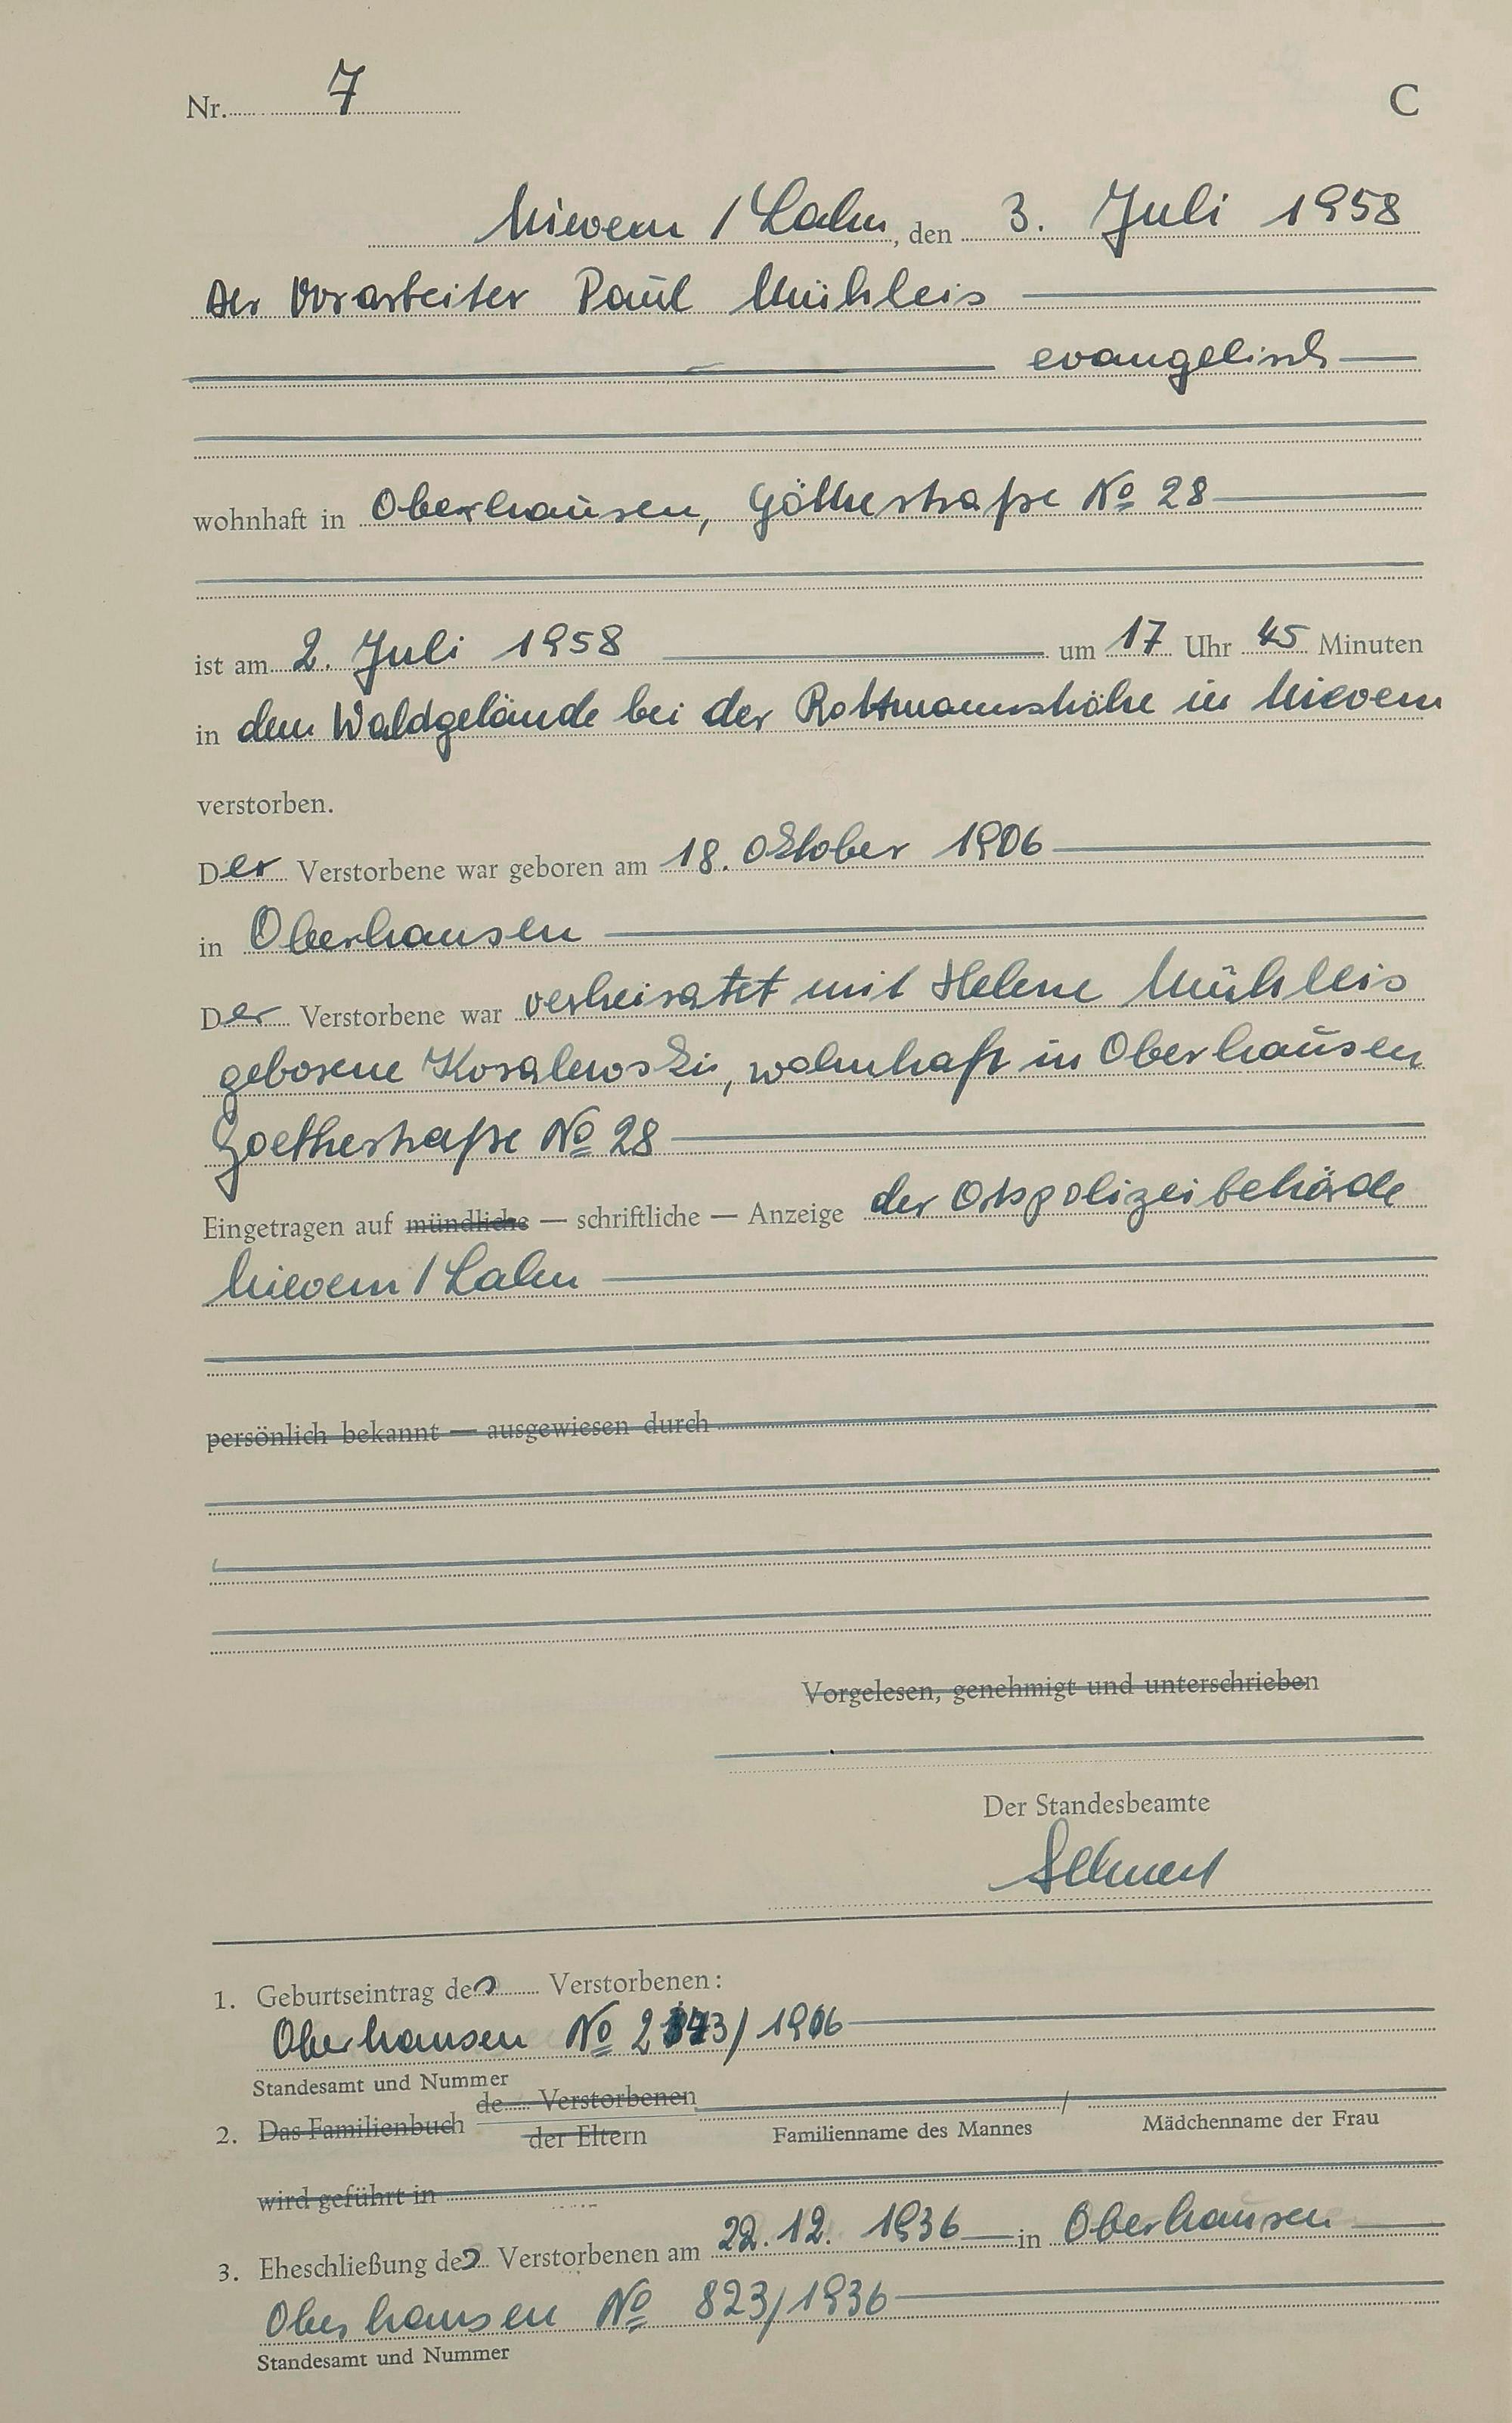 Nr. 7 C
Nievern / Lahn, den 3. Juli 1958
Der Vorarbeiter Paul Mühleis
evangelisch
wohnhaft in Oberhausen, Göthestraße No 28
ist am 2. Juli 1958 um 17 Uhr 45 Minuten
in dem Waldgelände bei der Rottmannshöhe in Nievern
verstorben.
Der Verstorbene war geboren am 18. Oktober 1906
in Oberhausen
Der Verstorbene war verheiratet mit Helene Mühleis
geborene Koralewski, wohnhaft in Oberhausen
Goethestraße No 28
Eingetragen auf mündliche — schriftliche — Anzeige der Ortspolizeibehörde
Nievern / Lahn
persönlich bekannt — ausgewiesen durch
Vorgelesen, genehmigt und unterschrieben
Der Standesbeamte
1. Geburtseintrag des Verstorbenen:
Oberhausen No / 1906
Standesamt und Nummer
2. Das Familienbuch de Verstorbenen / der Eltern
Familienname des Mannes Mädchenname der Frau
wird geführt in
3. Eheschließung des Verstorbenen am 22. 12. 1936 in Oberhausen
Oberhausen No 823/1936
Standesamt und Nummer